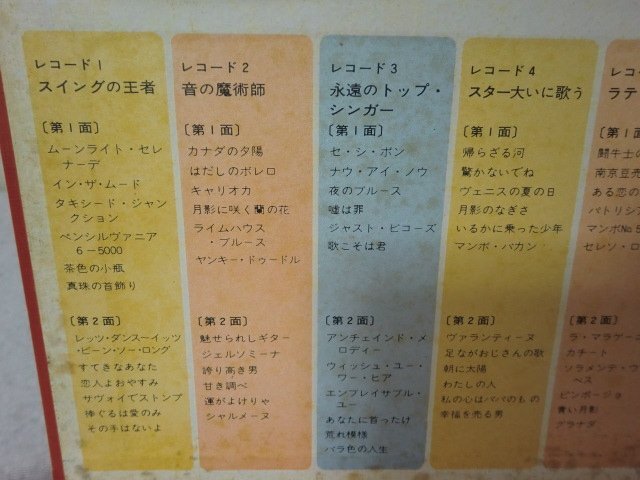 レコード1
スイングの王者
〔第1面〕
ムーンライト・セレ
ナーデ
イン・ザ・ムード
タキシード・ジャン
クション
ペンシルヴァニア
6−5000
茶色の小瓶
真珠の首飾り
〔第2面〕
レッツ・ダンス〜イッツ
・ビーン・ソー・ロング
すてきなあなた
恋人よおやすみ
サヴォイでストンプ
捧ぐるは愛のみ
その手はないよ
レコード2
音の魔術師
〔第1面〕
カナダの夕陽
はだしのボレロ
キャリオカ
月影に咲く蘭の花
ライムハウス
・ブルース
ヤンキー・ドゥードル
〔第2面〕
魅せられしギター
ジェルソミーナ
誇り高き男
甘き調べ
運がよけりゃ
シャルメーヌ
レコード3
永遠のトップ・
シンガー
〔第1面〕
セ・シ・ボン
ナウ・アイ・ノウ
夜のブルース
嘘は罪
ジャスト・ビコーズ
歌こそは君
〔第2面〕
アンチェインド・メ
ロディー
ウィッシュ・ユー・
ワー・ヒア
エンブレイサブル・
ユー
あなたに首ったけ
荒れ模様
バラ色の人生
レコード4
スター大いに歌う
〔第1面〕
帰らざる河
驚かないでね
ヴェニスの夏の日
月影のなぎさ
いるかに乗った少年
マンボ・バカン
〔第2面〕
ヴァランティーヌ
足ながおじさんの歌
朝に太陽
わたしの人
私の心はパパのもの
幸福を売る男
レコ
ラテ
〔第1面
闘牛士の
南京豆売
ある恋の
パトリシ
マンボNo.5
セレソ・ロ
〔第2面〕
ラ・マラゲー
カチート
ソラメンテ・ウ
ベス
ピンポージョ
青い月影
グラナダ